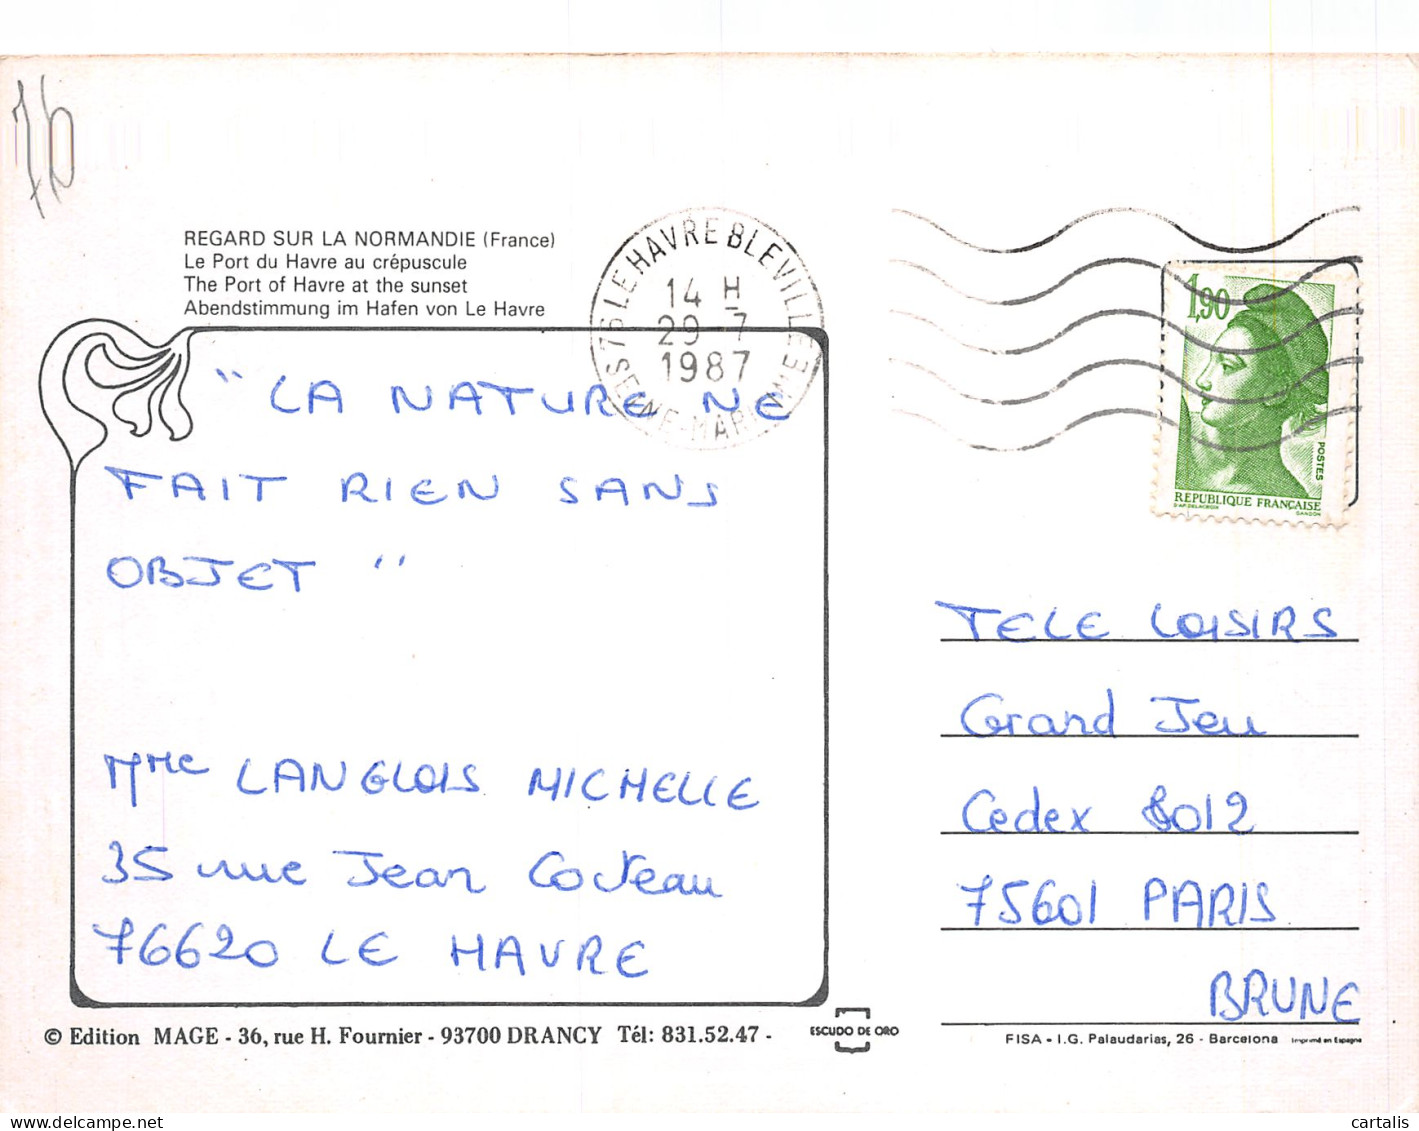 76
REGARD SUR LA NORMANDIE (France)
Le Port du Havre au crépuscule
The Port of Havre at the sunset
Abendstimmung im Hafen von Le Havre
76 LE HAVRE BLEVILLE
14 H
29-7
1987
SEINE-MARITIME
1,90
POSTES
REPUBLIQUE FRANÇAISE
D'AP. DELACROIX GANDON
" LA NATURE NE
FAIT RIEN SANS
OBJET "
Mme LANGLOIS MICHELLE
35 rue Jean Cocteau
76620 LE HAVRE
TELE LOISIRS
Grand Jeu
Cedex 8012
75601 PARIS
BRUNE
© Edition MAGE - 36, rue H. Fournier - 93700 DRANCY Tél: 831.52.47 -
ESCUDO DE ORO
FISA - I.G. Palaudarias, 26 - Barcelona Imprimé en Espagne
cartalis